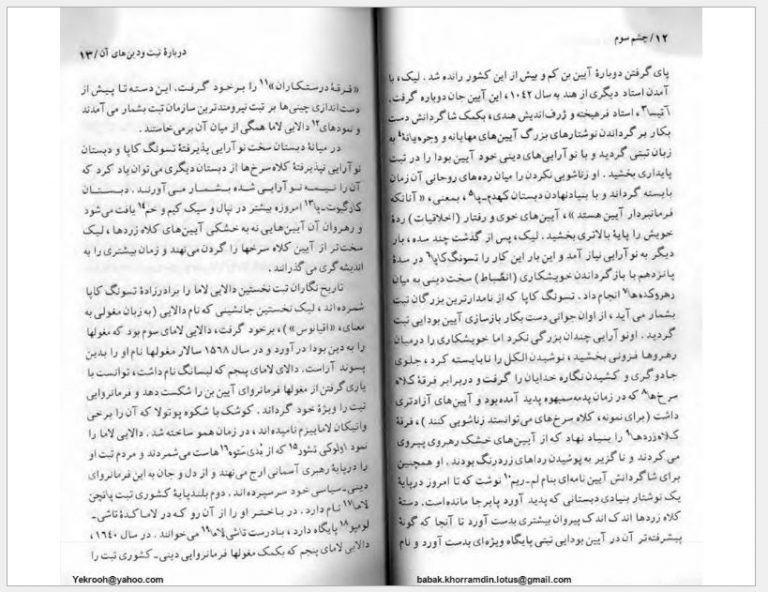 ۱۲/ چشم سوم
پای گرفتن دوبارهٔ آیین بن کم و بیش از این کشور رانده شد. لیک، با
آمدن استاد دیگری از هند به سال ۱۰۴۲، این آیین جان دوباره گرفت.
آتیسا۳، استاد فرهیخته و ژرف‌اندیش هندی، بکمک شاگردانش دست
بکار برگرداندن نوشتارهای بزرگ آیین‌های مهایانه و وجره‌یانه۴ به
زبان تبتی گردید و با نوآرایی‌های دینی خود آیین بودا را در تبت
پایداری بخشید. او زناشویی نکردن را میان رده‌های روحانی آن زمان
بایسته گرداند و با بنیادنهادن دبستان کهدم-پا۵، بمعنی، «آنانکه
فرمانبردار آیین هستند»، آیین‌های خوی و رفتار (اخلاقیات) ردهٔ
خویش را پایهٔ بالاتری بخشید. لیک، پس از گذشت چند سده، بار
دیگر به نوآرایی نیاز آمد و این بار این کار را تسونگ کاپا۶ در سدهٔ
پانزدهم با بازگرداندن خویشکاری (انضباط) سخت دینی به میان
رهروکده‌ها۷ انجام داد. تسونگ کاپا که از نامدارترین بزرگان تبت
بشمار می‌آید، از اوان جوانی دست بکار بازسازی آیین بودایی تبت
گردید. او نوآرایی چندان بزرگی نکرد اما خویشکاری را درمیان
رهروها فزونی بخشید، نوشیدن الکل را نابایسته کرد، جلوی
جادوگری و کشیدن نگاره خدایان را گرفت و دربرابر فرقهٔ کلاه
سرخ‌ها۸ که در زمان پدمه‌سمبهوه پدید آمده بود و آیین‌های آزادتری
داشت (برای نمونه، کلاه سرخ‌های می‌توانستند زناشویی کنند)، فرقهٔ
کلاه‌زردها۹ را بنیاد نهاد که از آیین‌های خشک رهروی پیروی
می‌کردند و ناگزیر به پوشیدن رداهای زردرنگ بودند. او همچنین
برای شاگردانش آیین نامه‌ای بنام لم-ریم۱۰ نوشت که تا امروز درپایهٔ
یک نوشتار بنیادی دبستانی که پدید آورد پابرجا مانده است. دستهٔ
کلاه زردها اندک اندک پیروان بیشتری بدست آورد تا آنجا که گونهٔ
پیشرفته‌تر آن در آیین بودایی تبتی پایگاه ویژه‌ای بدست آورد و نام
babak.khorramdin.lotus@gmail.com
دربارهٔ تبت و دین‌های آن / ۱۳
«فرقهٔ درستکاران»۱۱ را برخود گرفت. این دسته تا پیش از
دست‌اندازی چینی‌ها بر تبت نیرومندترین سازمان تبت بشمار می‌آمدند
و نمودهای۱۲ دالایی لاما همگی از میان آن برمی‌خاستند.
در میانهٔ دبستان سخت نوآرایی پذیرفتهٔ تسونگ کاپا و دبستان
نوآرایی نپذیرفتهٔ کلاه سرخ‌ها از دبستان دیگری می‌توان یاد کرد که
آن را نیمه نوآرایی شده بشمار می‌آورند. دبستان
کارگیوت-پا۱۳ امروزه بیشتر در نپال و سیک کیم و خم۱۴ یافت می‌شود
و رهروان آن آیین‌هایی نه به خشکی آیین‌های کلاه زردها، لیک
سخت‌تر از آیین کلاه سرخها را گردن می‌نهند و زمان بیشتری را به
اندیشه‌گری می‌گذرانند.
تاریخ نگاران تبت نخستین دالایی لاما را برادرزادهٔ تسونگ کاپا
شمرده‌اند، لیک نخستین جانشینی که نام دالایی (به زبان مغولی به
معنای، «اقیانوس»)، برخود گرفت، دالایی لامای سوم بود که مغولها
را به دین بودا درآورد و در سال ۱۵۶۸ سالار مغولها نام او را بدین
پسوند آراست. دالای لامای پنجم که لبسانگ نام داشت، توانست با
یاری گرفتن از مغولها فرمانروای آیین بن را شکست دهد و فرمانروایی
تبت را ویژهٔ خود گرداند. کوشک با شکوه پوتولا که آن را برخی
واتیکان لاماییزم نامیده‌اند، در زمان همو ساخته شد. دالایی لاما را
نمود اولوکی تشور۱۵ که از بُدی‌سَتوه۱۶هاست می‌شمردند و مردم تبت او
را درپایهٔ رهبری آسمانی ارج می‌نهند و از دل و جان به این فرمانروای
دینی-سیاسی خود سرسپرده‌اند. دوم بلندپایهٔ کشوری تبت پانچن
لاما۱۷ نام دارد. در باختر او را از آن رو که در لاماکدهٔ تاشی-
لومپو۱۸ پایگاه دارد، بنادرست تاشی لاما۱۹ می‌خوانند. در سال ۱۶۴۰،
دالایی لامای پنجم که بکمک مغولها فرمانروایی دینی-کشوری تبت را
Yekrooh@yahoo.com